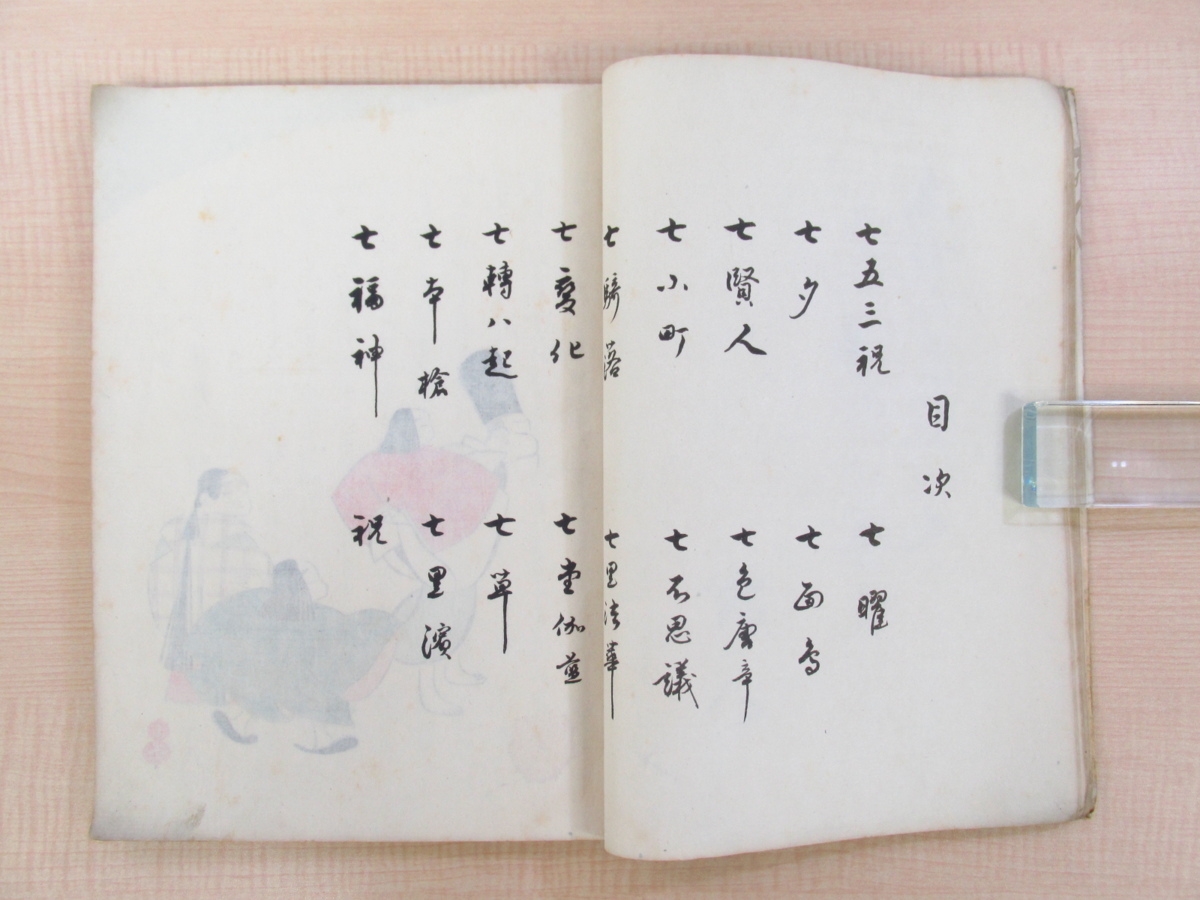 目次
七五三祝
七曜
七夕
七面鳥
七賢人
七色唐辛
七小町
七不思議
七騎落
七里法華
七変化
七堂伽藍
七轉八起
七草
七本槍
七里濱
七福神
祝